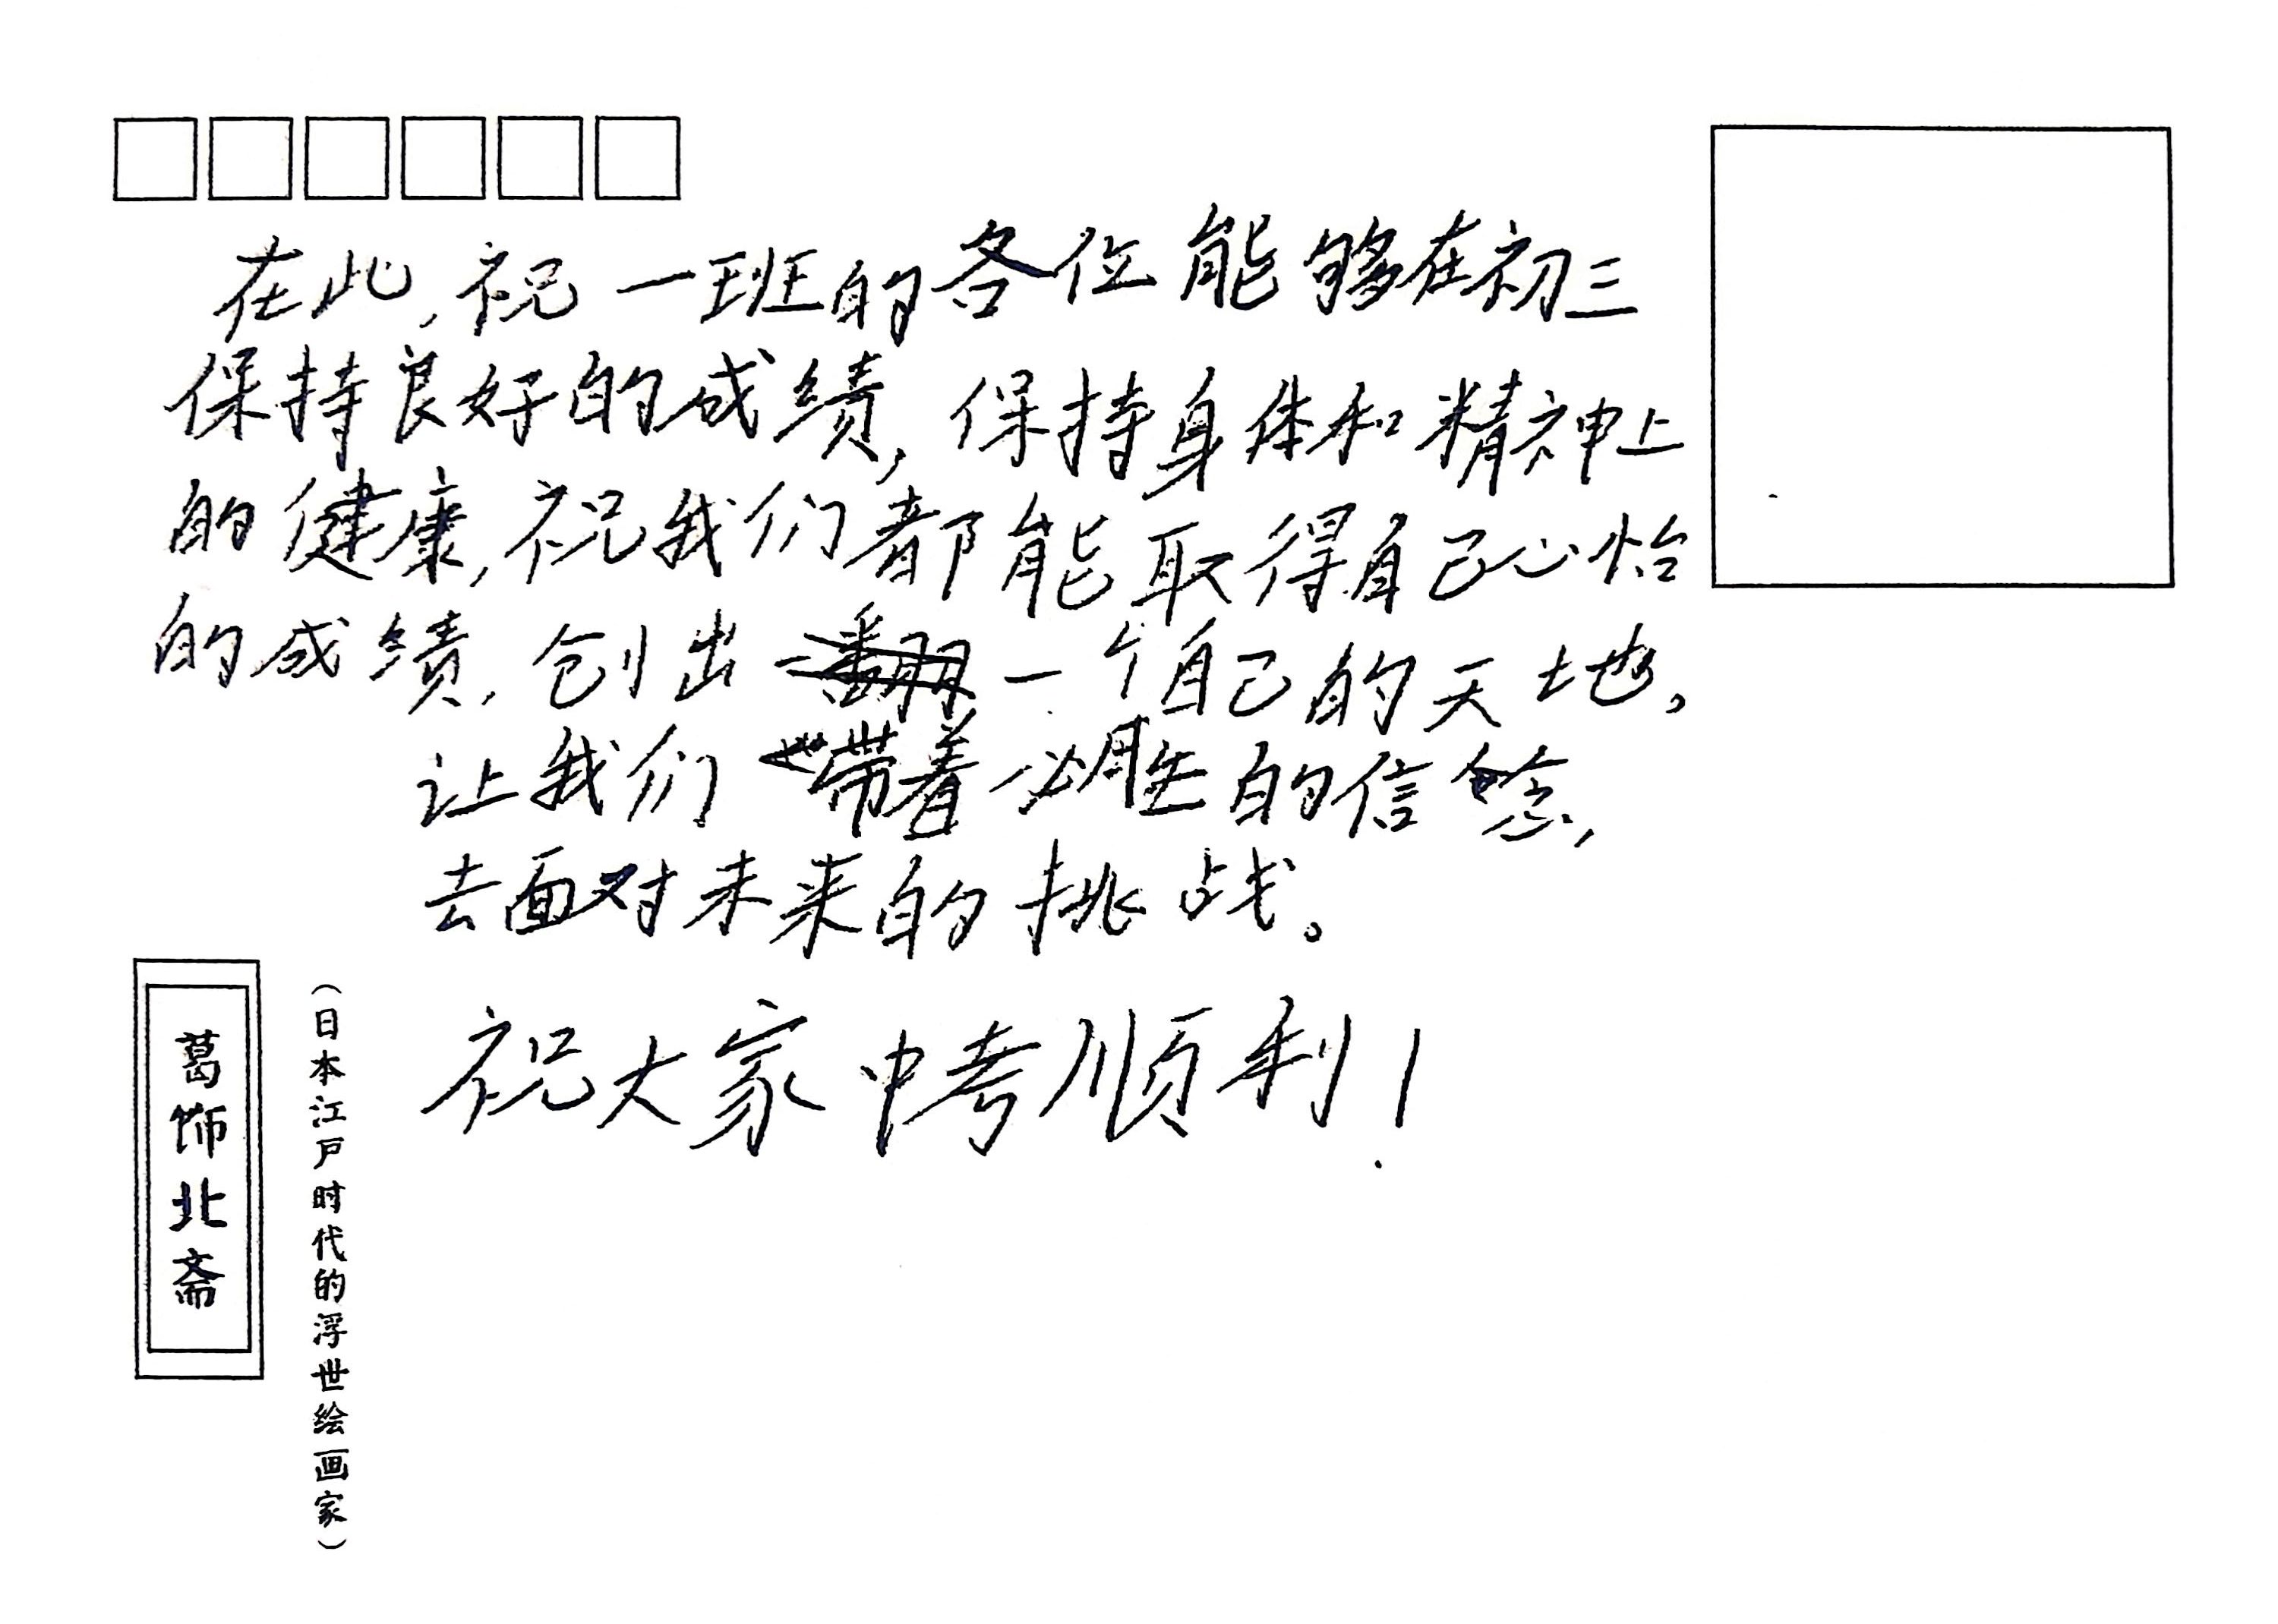 在此,祝一班的各位能够在初三
保持良好的成绩,保持身体和精神上
的健康,祝我们都能取得自己心怡
的成绩,创出一个自己的天地,
让我们带着必胜的信念,
去面对未来的挑战。
祝大家中考顺利!
葛饰北斋
(日本江户时代的浮世绘画家)